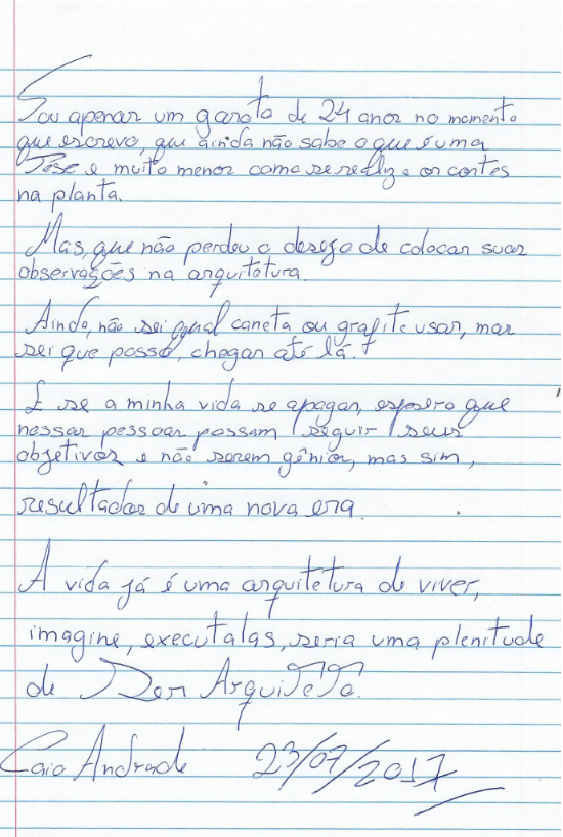 Sou apenas um garoto de 24 anos no momento
que escrevo, que ainda não sabe o que é uma
Tese e muito menor como se realiza os cortes
na planta.
Mas, que não perdeu o desejo de colocar suas
observações na arquitetura.
Ainda, não sei qual caneta ou grafite usar, mas
sei que posso, chegar até lá.
E se a minha vida se apagar, espero que
nossas pessoas possam seguir seus
objetivos e não serem gênios, mas sim,
resultados de uma nova era.
A vida já é uma arquitetura de viver,
imagine, executalas, seria uma plenitude
de Ser Arquiteto.
Caio Andrade 23/07/2017